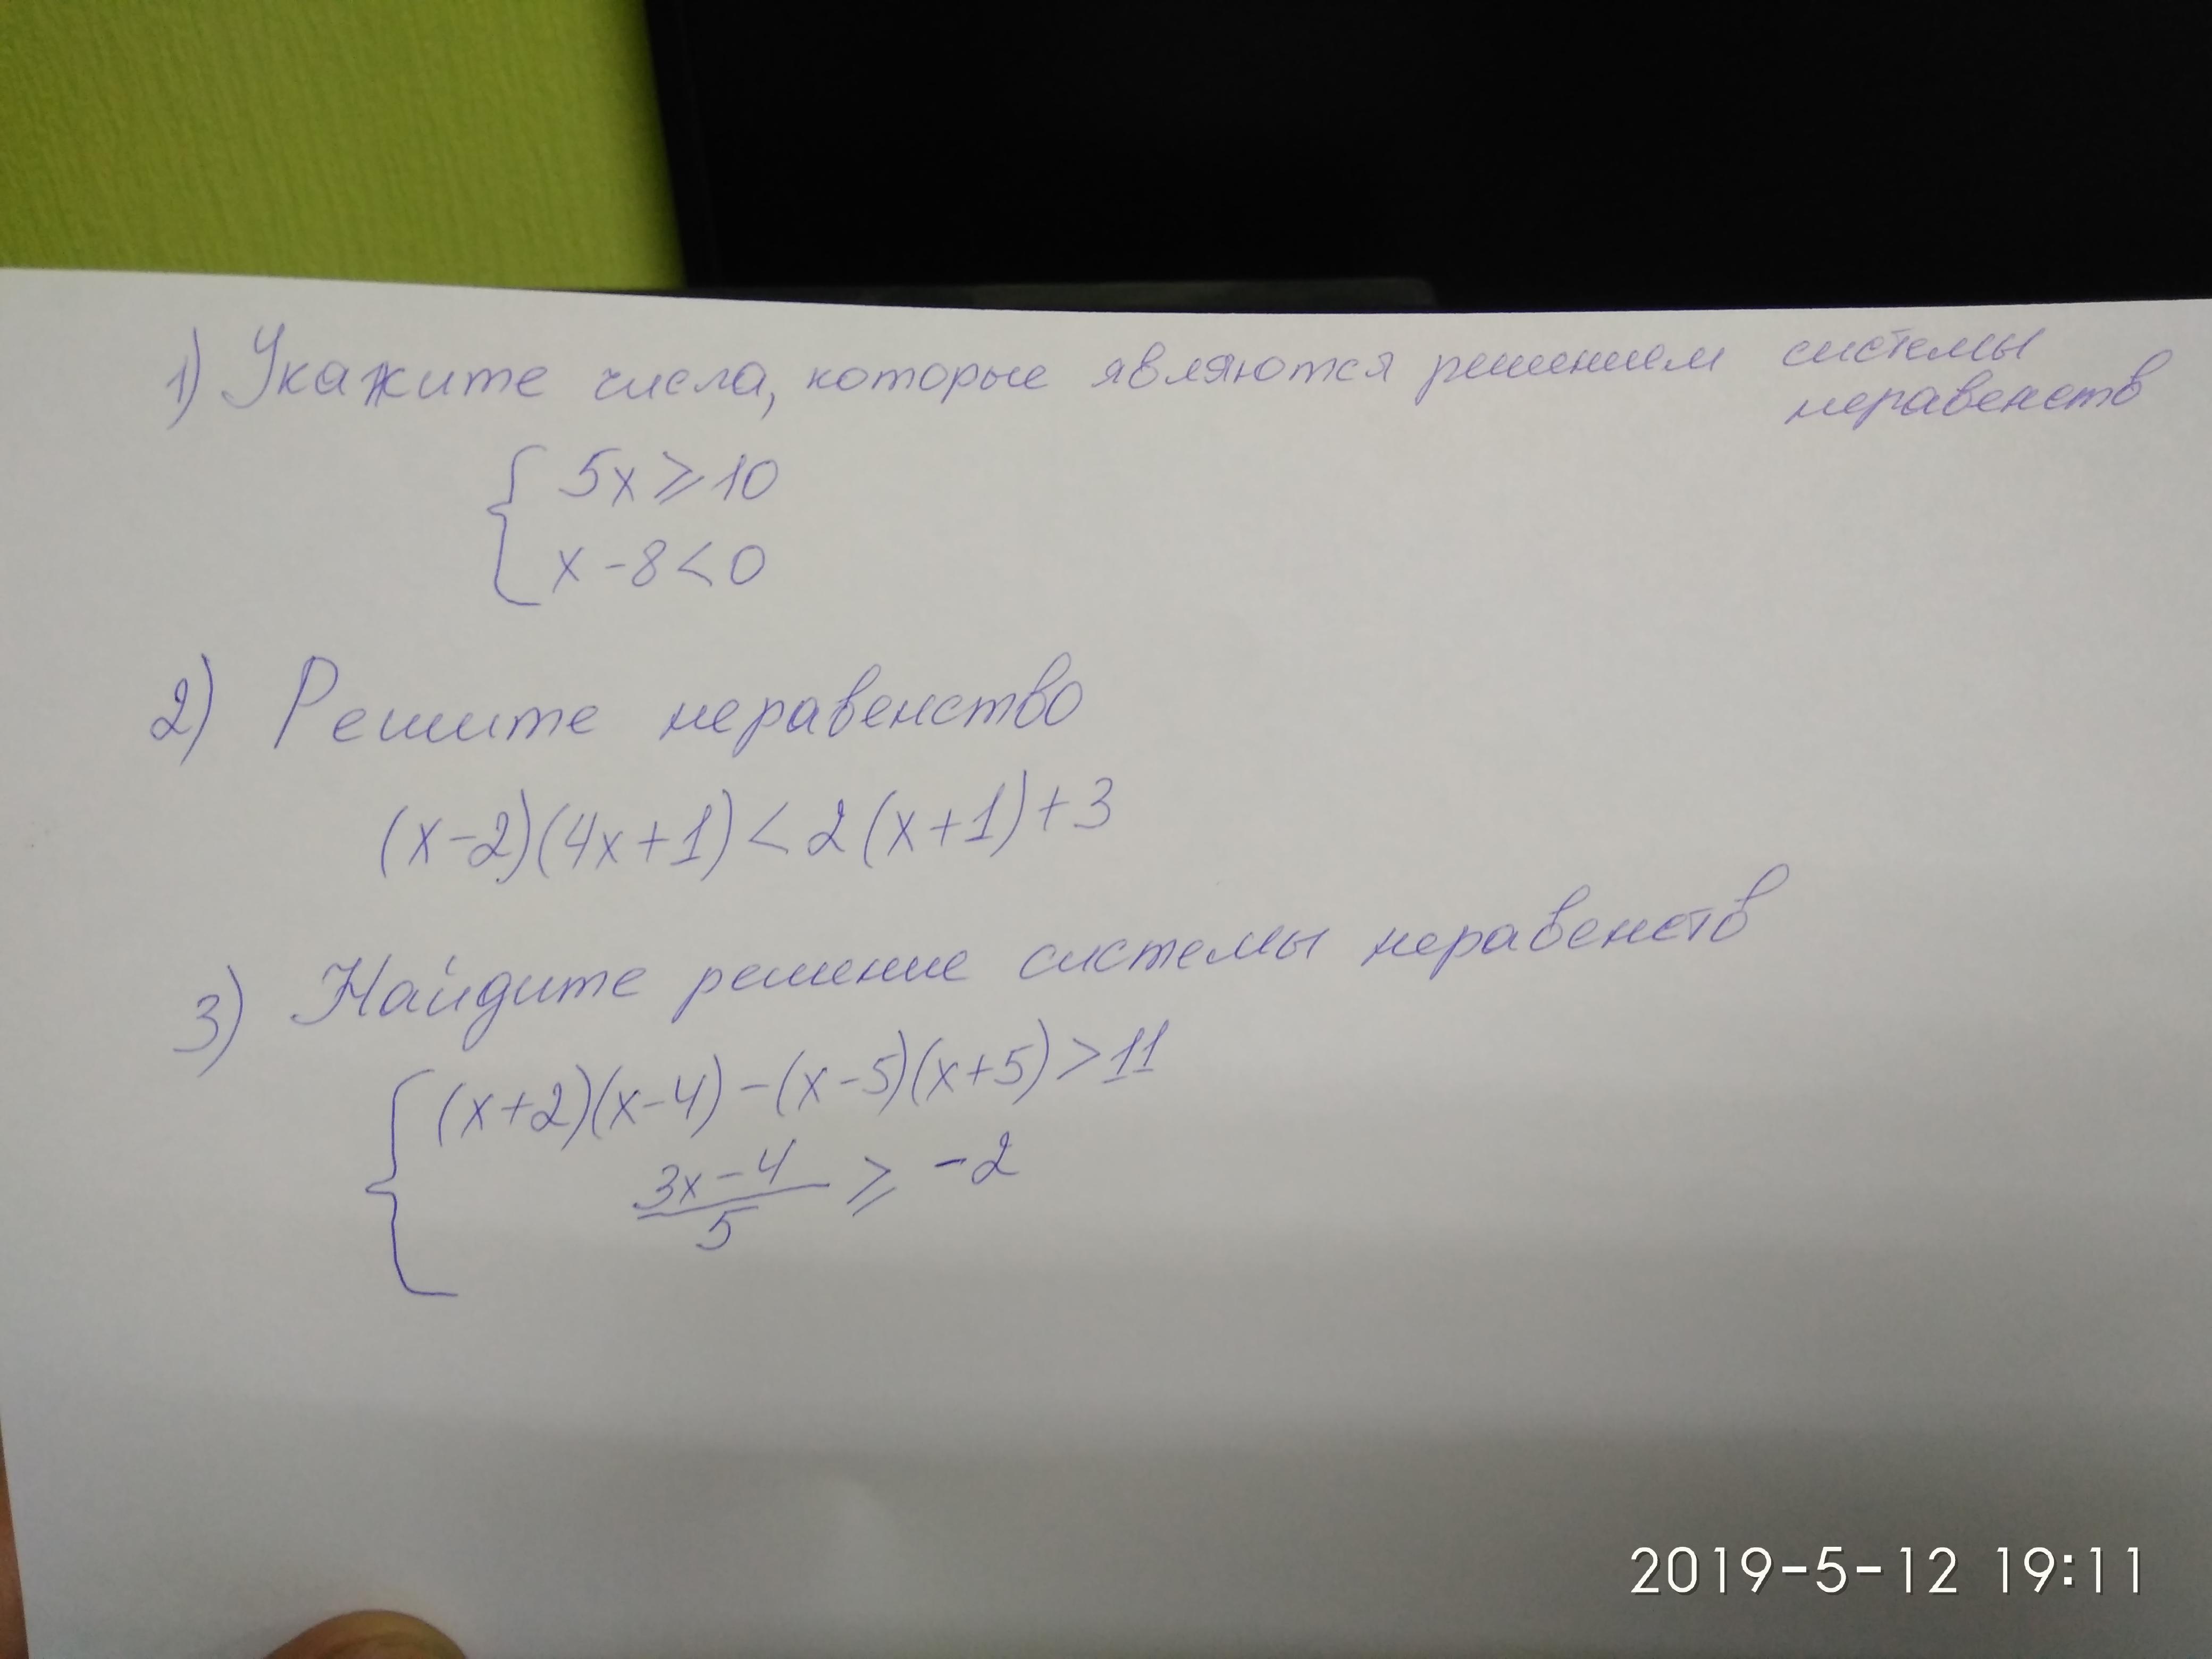 1) Укажите числа, которые являются решением системы
неравенств
{ 5x ⩾ 10
x - 8 < 0
2) Решите неравенство
(x-2)(4x+1) < 2(x+1)+3
3) Найдите решение системы неравенств
{ (x+2)(x-4) - (x-5)(x+5) > 11
3x-4 / 5 ⩾ -2
2019-5-12 19:11